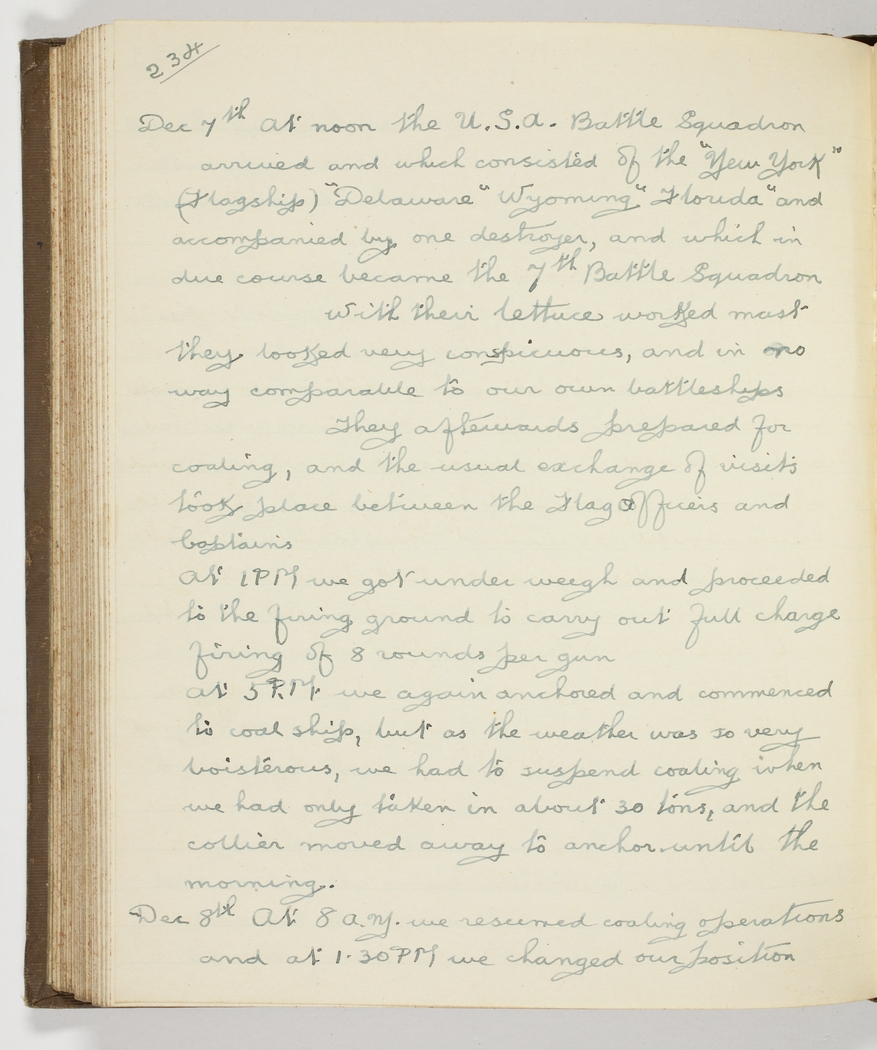 234
Dec 7th At noon the U.S.A. Battle Squadron
arrived and which consisted of the "New York"
(Flagship) "Delaware" Wyoming" Florida" and
accompanied by one destroyer, and which in
due course became the 7th Battle Squadron
With their lettuce worked mast
they looked very conspicuous, and in no
way comparable to our own battleships
They afterwards prepared for
coaling, and the usual exchange of visits
took place between the Flag Officers and
Captains
At 1 PM we got under weigh and proceeded
to the firing ground to carry out full charge
firing of 8 rounds per gun
At 5 P.M. we again anchored and commenced
to coal ship, but as the weather was so very
boisterous, we had to suspend coaling when
we had only taken in about 30 tons, and the
collier moved away to anchor until the
morning.
Dec 8th At 8 a.m. we resumed coaling operations
and at 1.30 PM we changed our position